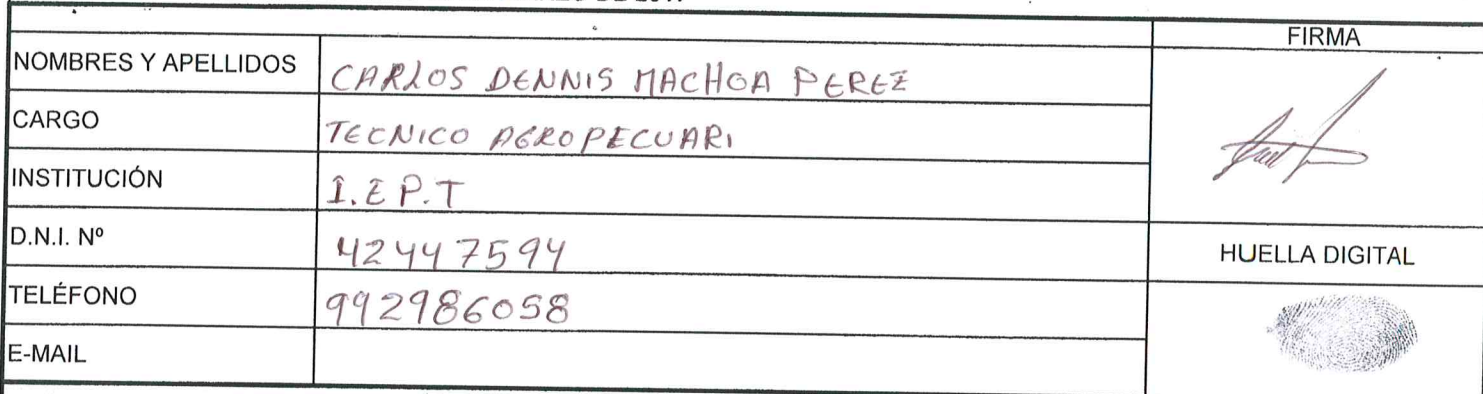 FIRMA
NOMBRES Y APELLIDOS CARLOS DENNIS MACHOA PEREZ
CARGO TECNICO AGROPECUARI
INSTITUCIÓN I.E P.T
D.N.I. Nº 42447594
HUELLA DIGITAL
TELÉFONO 992986058
E-MAIL